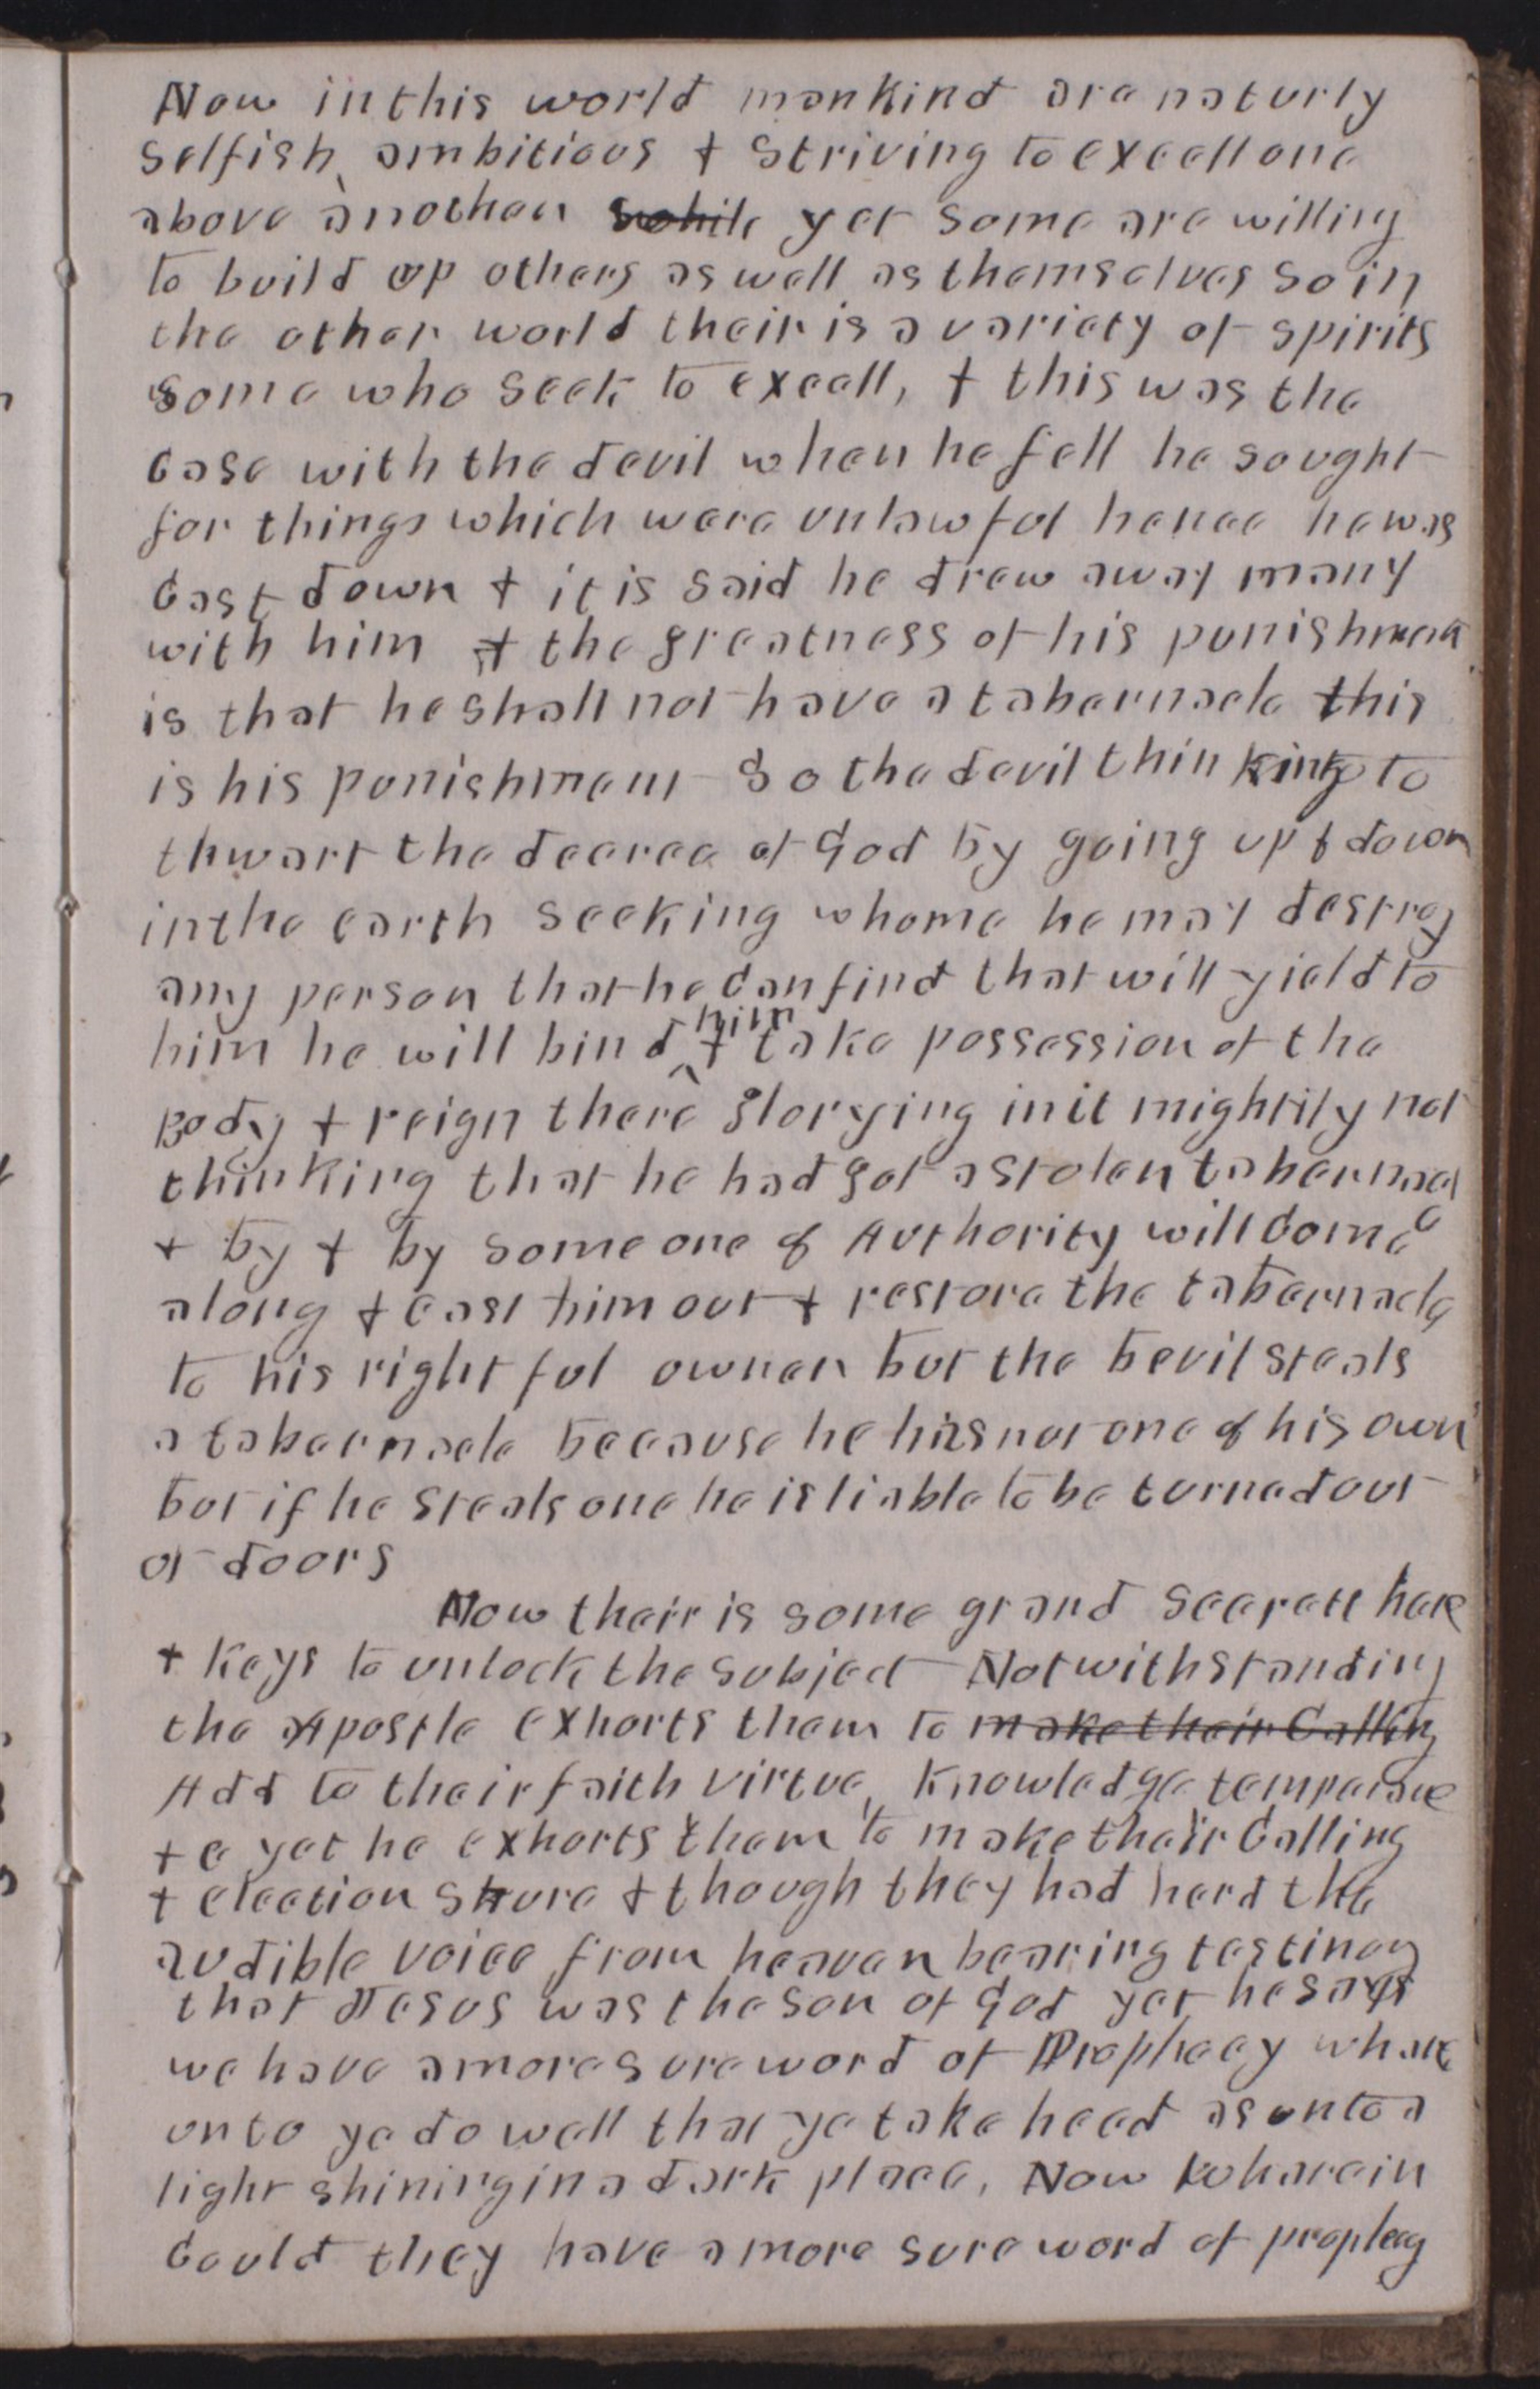 Now in this world mankind are naturly
selfish ambitious & striving to excell one
above another while yet some are willing
to build up others as well as themselves so in
the other world their is a variety of spirits
some who seek to excell, & this was the
case with the devil when he fell he sought
for things which were unlawful hence he was
cast down & it is said he drew away many
with him & the greatness of his punishment
is that he shall not have a tabernacle this
is his punishment So the devil thinking to
thwart the decree of God by going up & down
in the earth seeking whome he may destroy
any person that he can find that will yield to
him he will bind him & take possession of the
Body & reign there glorying in it mightily not
thinking that he had got a stolen tabernacle
& by & by some one of Authority will come
along & cast him out & restore the tabernacle
to his rightful owner but the Devil steals
a tabernacle because he has not one of his own
but if he steals one he is liable to be turned out
of doors
Now their is some grand secrett here
& Keys to unlock the subject Notwithstanding
the Apostle exhorts them to make their Calling
Add to their faith virtue, knowledge temperance
&c yet he exhorts them to make their Calling
& election shure & though they had herd the
audible voice from heaven bearing testimony
that Jesus was the son of God yet he says
we have a more sure word of Prophecy where
unto ye do well that ye take heed as unto a
light shining in a dark place, Now wherein
could they have a more sure word of prophecy